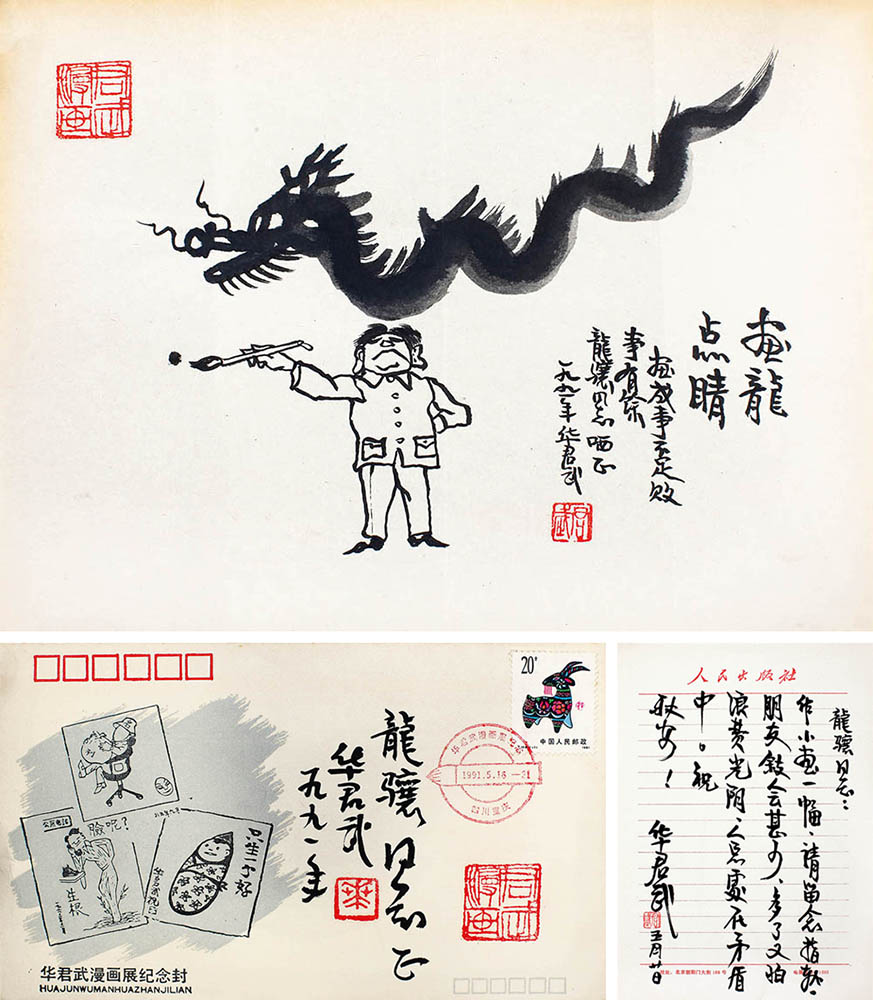 君武漫画
画龍
点睛
画成事不足败
事有馀
龍骧同志哂正
一九九一年 华君武
君武
20分
中国人民邮政
1991.5.16—21
四川重庆
龍骧同志正
华君武
一九九一年
華
君武漫画
臉呢?
生根
只生一个好
华君武漫画展纪念封
HUAJUNWUMANHUAZHANJILIAN
人民出版社
龍骧同志:
作小画一幅、请留念指教。
朋友叙会甚少、多了又怕
浪费光阴、人总处在矛盾
中。祝
安!
华君武